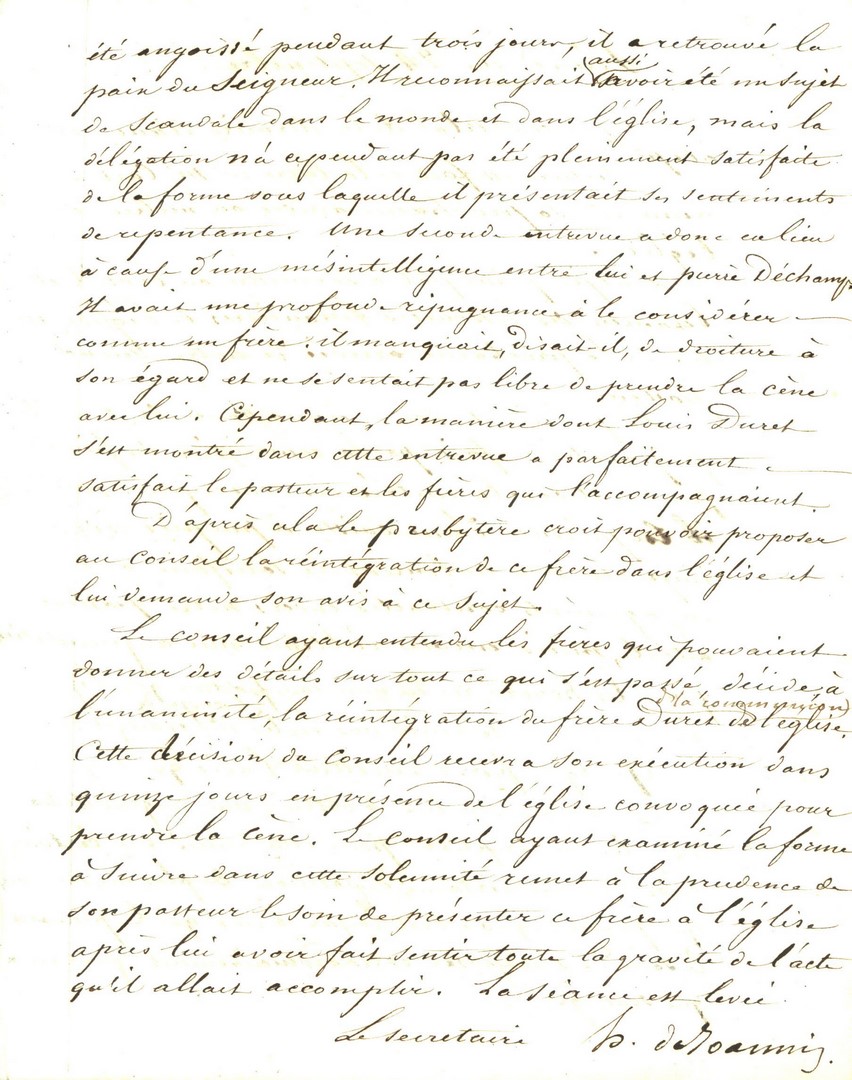 été angoissé pendant trois jours, il a retrouvé la
paix du Seigneur. Il reconnaissait aussi avoir été un sujet
de scandale dans le monde et dans l'église, mais la
délégation n'a cependant pas été pleinement satisfaite
de la forme sous laquelle il présentait ses sentiments
de repentance. Une seconde entrevue a donc eu lieu
à cause d'une mésintelligence entre lui et pierre Déchamps
Il avait une profonde répugnance à le considérer
comme un frère. il manquait, disait-il, de droiture à
son égard et ne se sentait pas libre de prendre la cène
avec lui. Cependant, la manière dont Louis Duret
s'est montré dans cette entrevue a parfaitement
satisfait le pasteur et les frères qui l'accompagnaient.
D'après cela le presbytère croit pouvoir proposer
au conseil la réintégration de ce frère dans l'église et
lui demande son avis à ce sujet.
Le conseil ayant entendu les frères qui pouvaient
donner des détails sur tout ce qui s'est passé, décide à
l'unaminité, la réintégration du frère Duret à la communion de l'église.
Cette décision du conseil recevra son exécution dans
quinze jours en présence de l'église convoquée pour
prendre la Cène. Le conseil ayant examiné la forme
à suivre dans cette solemnité remet à la prudence de
son pasteur le soin de présenter ce frère à l'église
après lui avoir fait sentir toute la gravité de l'acte
qu'il allait accomplir. La séance est levée
Le secrétaire h. de Joannis.